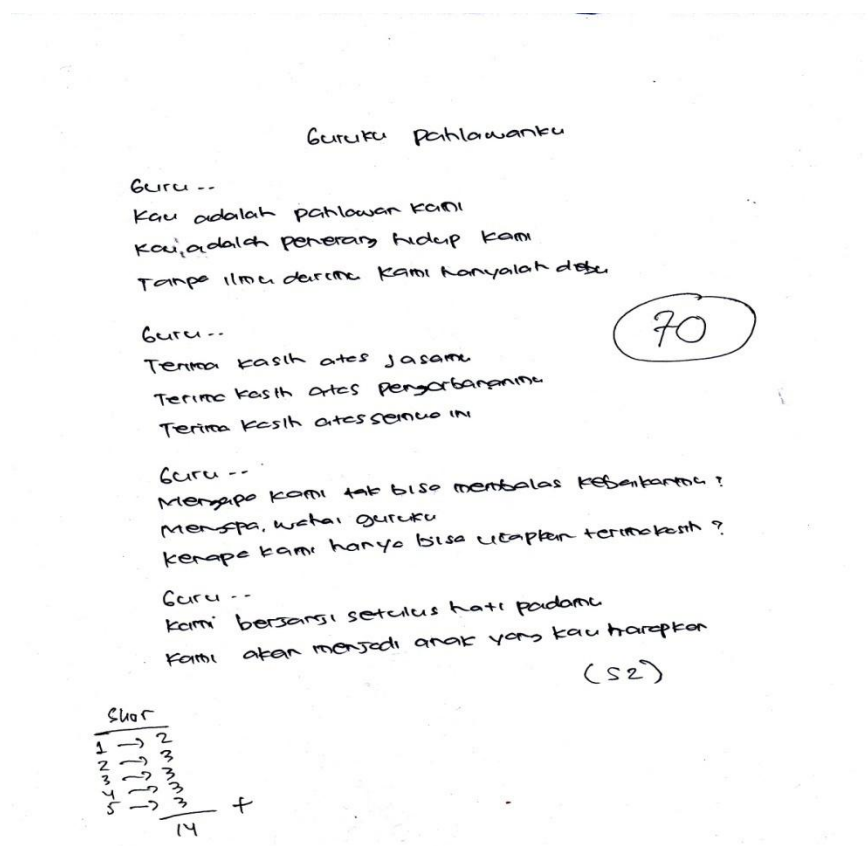 Guruku Pahlawanku
Guru --
Kau adalah pahlawan kami
Kau, adalah penerang hidup kami
Tanpa ilmu darimu kami hanyalah debu
70
Guru --
Terima kasih atas jasamu
Terima kasih atas pengorbananmu
Terima kasih atas semua ini
Guru --
Mengapa kami tak bisa membalas kebaikanmu ?
Mengapa, wahai guruku
Kenapa kami hanya bisa ucapkan terimakasih ?
Guru --
Kami berjanji setulus hati padamu
Kami akan menjadi anak yang kau harapkan
(S2)
Skor
1 → 2
2 → 3
3 → 3
4 → 3
5 → 3
+
14